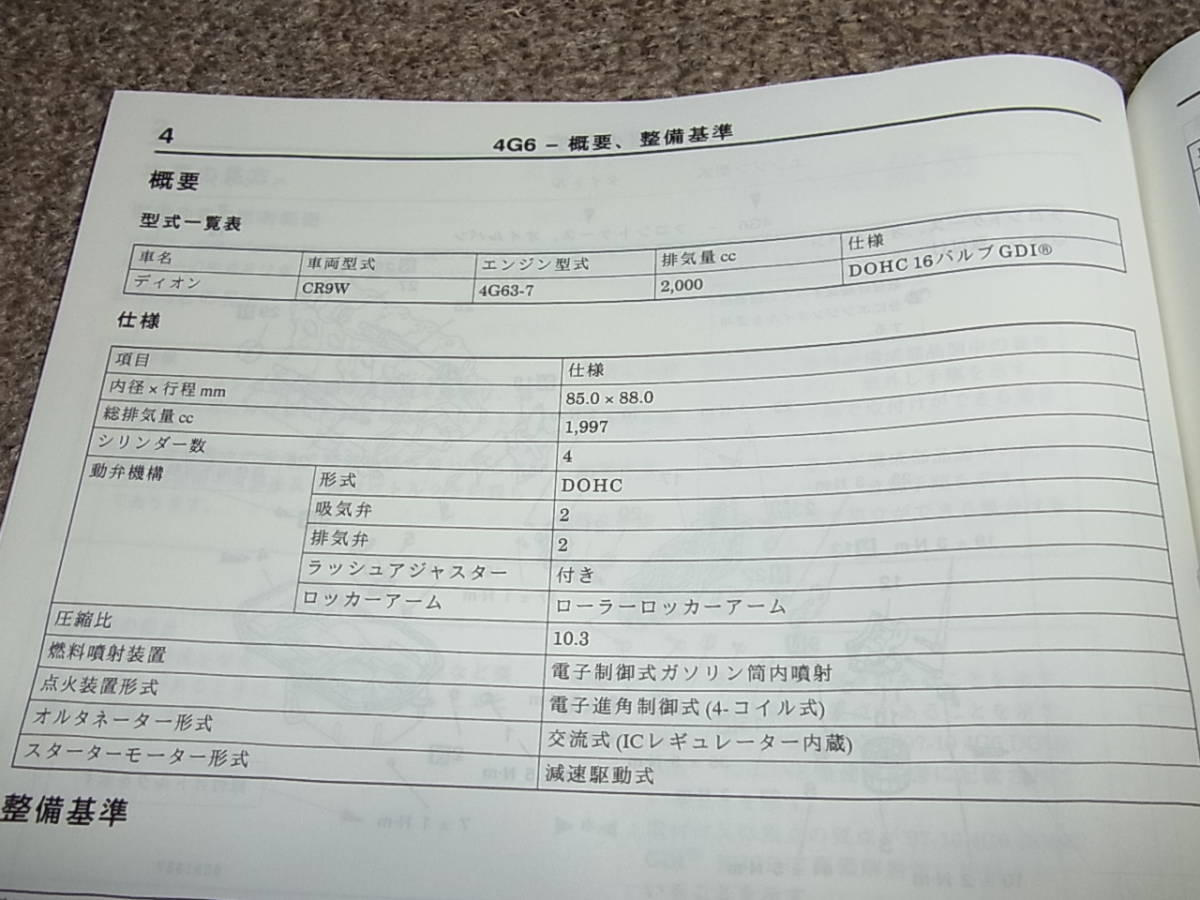 4
4G6 – 概要、整備基準
概要
型式一覧表
車名 車両型式 エンジン型式 排気量 cc 仕様
ディオン CR9W 4G63-7 2,000 DOHC 16バルブ GDI®
仕様
項目 仕様
内径 × 行程 mm 85.0 × 88.0
総排気量 cc 1,997
シリンダー数 4
動弁機構 形式 DOHC
吸気弁 2
排気弁 2
ラッシュアジャスター 付き
ロッカーアーム ローラーロッカーアーム
圧縮比 10.3
燃料噴射装置 電子制御式ガソリン筒内噴射
点火装置形式 電子進角制御式 (4-コイル式)
オルタネーター形式 交流式 (ICレギュレーター内蔵)
スターターモーター形式 減速駆動式
整備基準